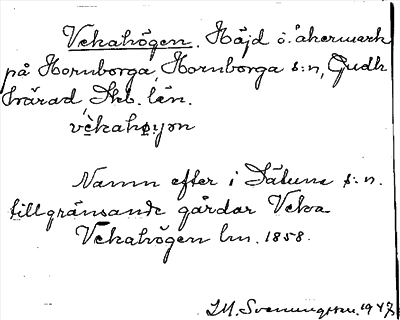 Vekahögen. Höjd i åkermark
på Hornborga, Hornborga s:n, Gudh
härad, Skb. län.
vèkahø:yən
Namn efter i Sätuna s:n.
tillgränsande gårdar Veka
Vekahögen lm. 1858.
S.M. Svenungsson. 1947